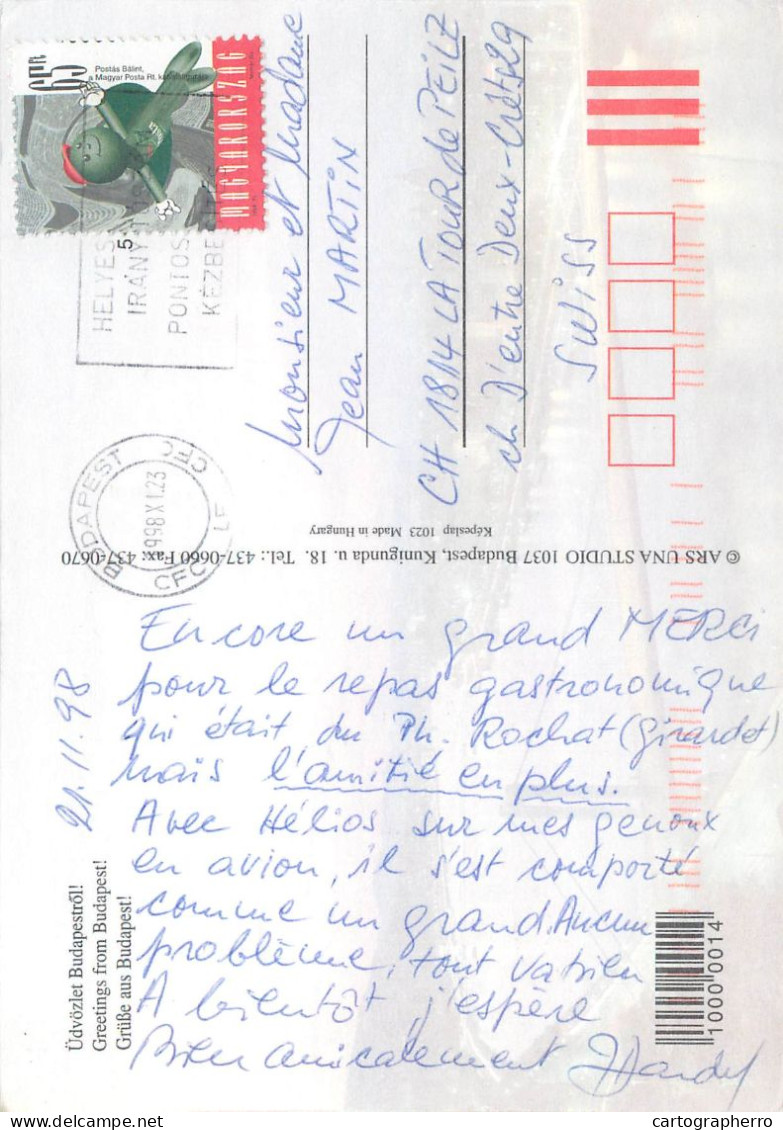 65 FT
Postás Bálint,
a Magyar Posta Rt. kabalafigurája
MAGYARORSZÁG
HELYES
IRÁNY
PONTOS
KÉZBE
BUDAPEST
1998 XI. 23
CFC
Monsieur et Madame
Jean MARTIN
CH 1814 LA TOUR de PEILZ
ch D'entre Deux-Crêts 29
SWISS
Képeslap 1023 Made in Hungary
© ARS UNA STUDIO 1037 Budapest, Kunigunda u. 18. Tel.: 437-0660 Fax: 437-0670
21.11.98
Encore un grand MERCI
pour le repas gastronomique
qui était du Ph. Rochat (Girardet)
mais l'amitié en plus.
Avec Hélios sur mes genoux
en avion, il s'est comporté
comme un grand. Aucun
problème, tout va bien
A bientôt j'espère
Bien amicalement
Üdvözlet Budapestről!
Greetings from Budapest!
Grüße aus Budapest!
1000 0014
cartographerro